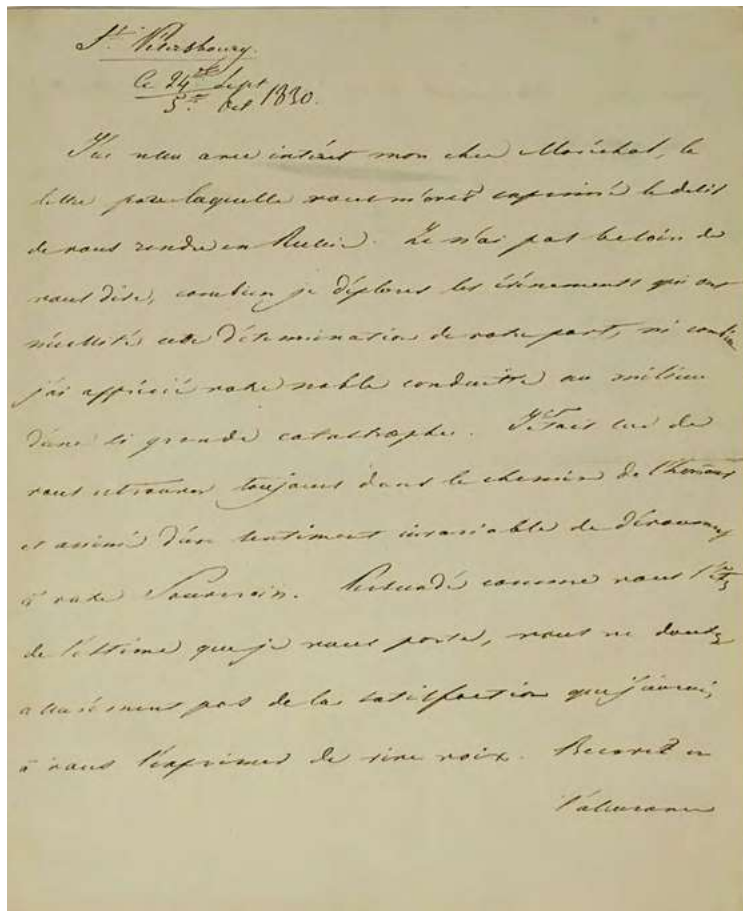 St. Pétersbourg.
Ce 24 Sept
5 Oct 1830.
J'ai reçu avec intérêt mon cher Maréchal, la
lettre par laquelle vous m'avez exprimé le désir
de vous rendre en Russie. Je n'ai pas besoin de
vous dire, combien je déplore les événements qui ont
nécessité cette détermination de votre part, ni combien
j'ai apprécié votre noble conduitte au milieu
d'une si grande catastrophe. J'étais sûr de
vous retrouver toujours dans le chemin de l'honneur
et animé d'un sentiment invariable de dévouement
à votre Souverain. Persuadé comme vous l'êtes
de l'estime que je vous porte, vous ne doutez
assurément pas de la satisfaction que j'aurai,
à vous l'exprimer de vive voix. Recevez en
l'assurance